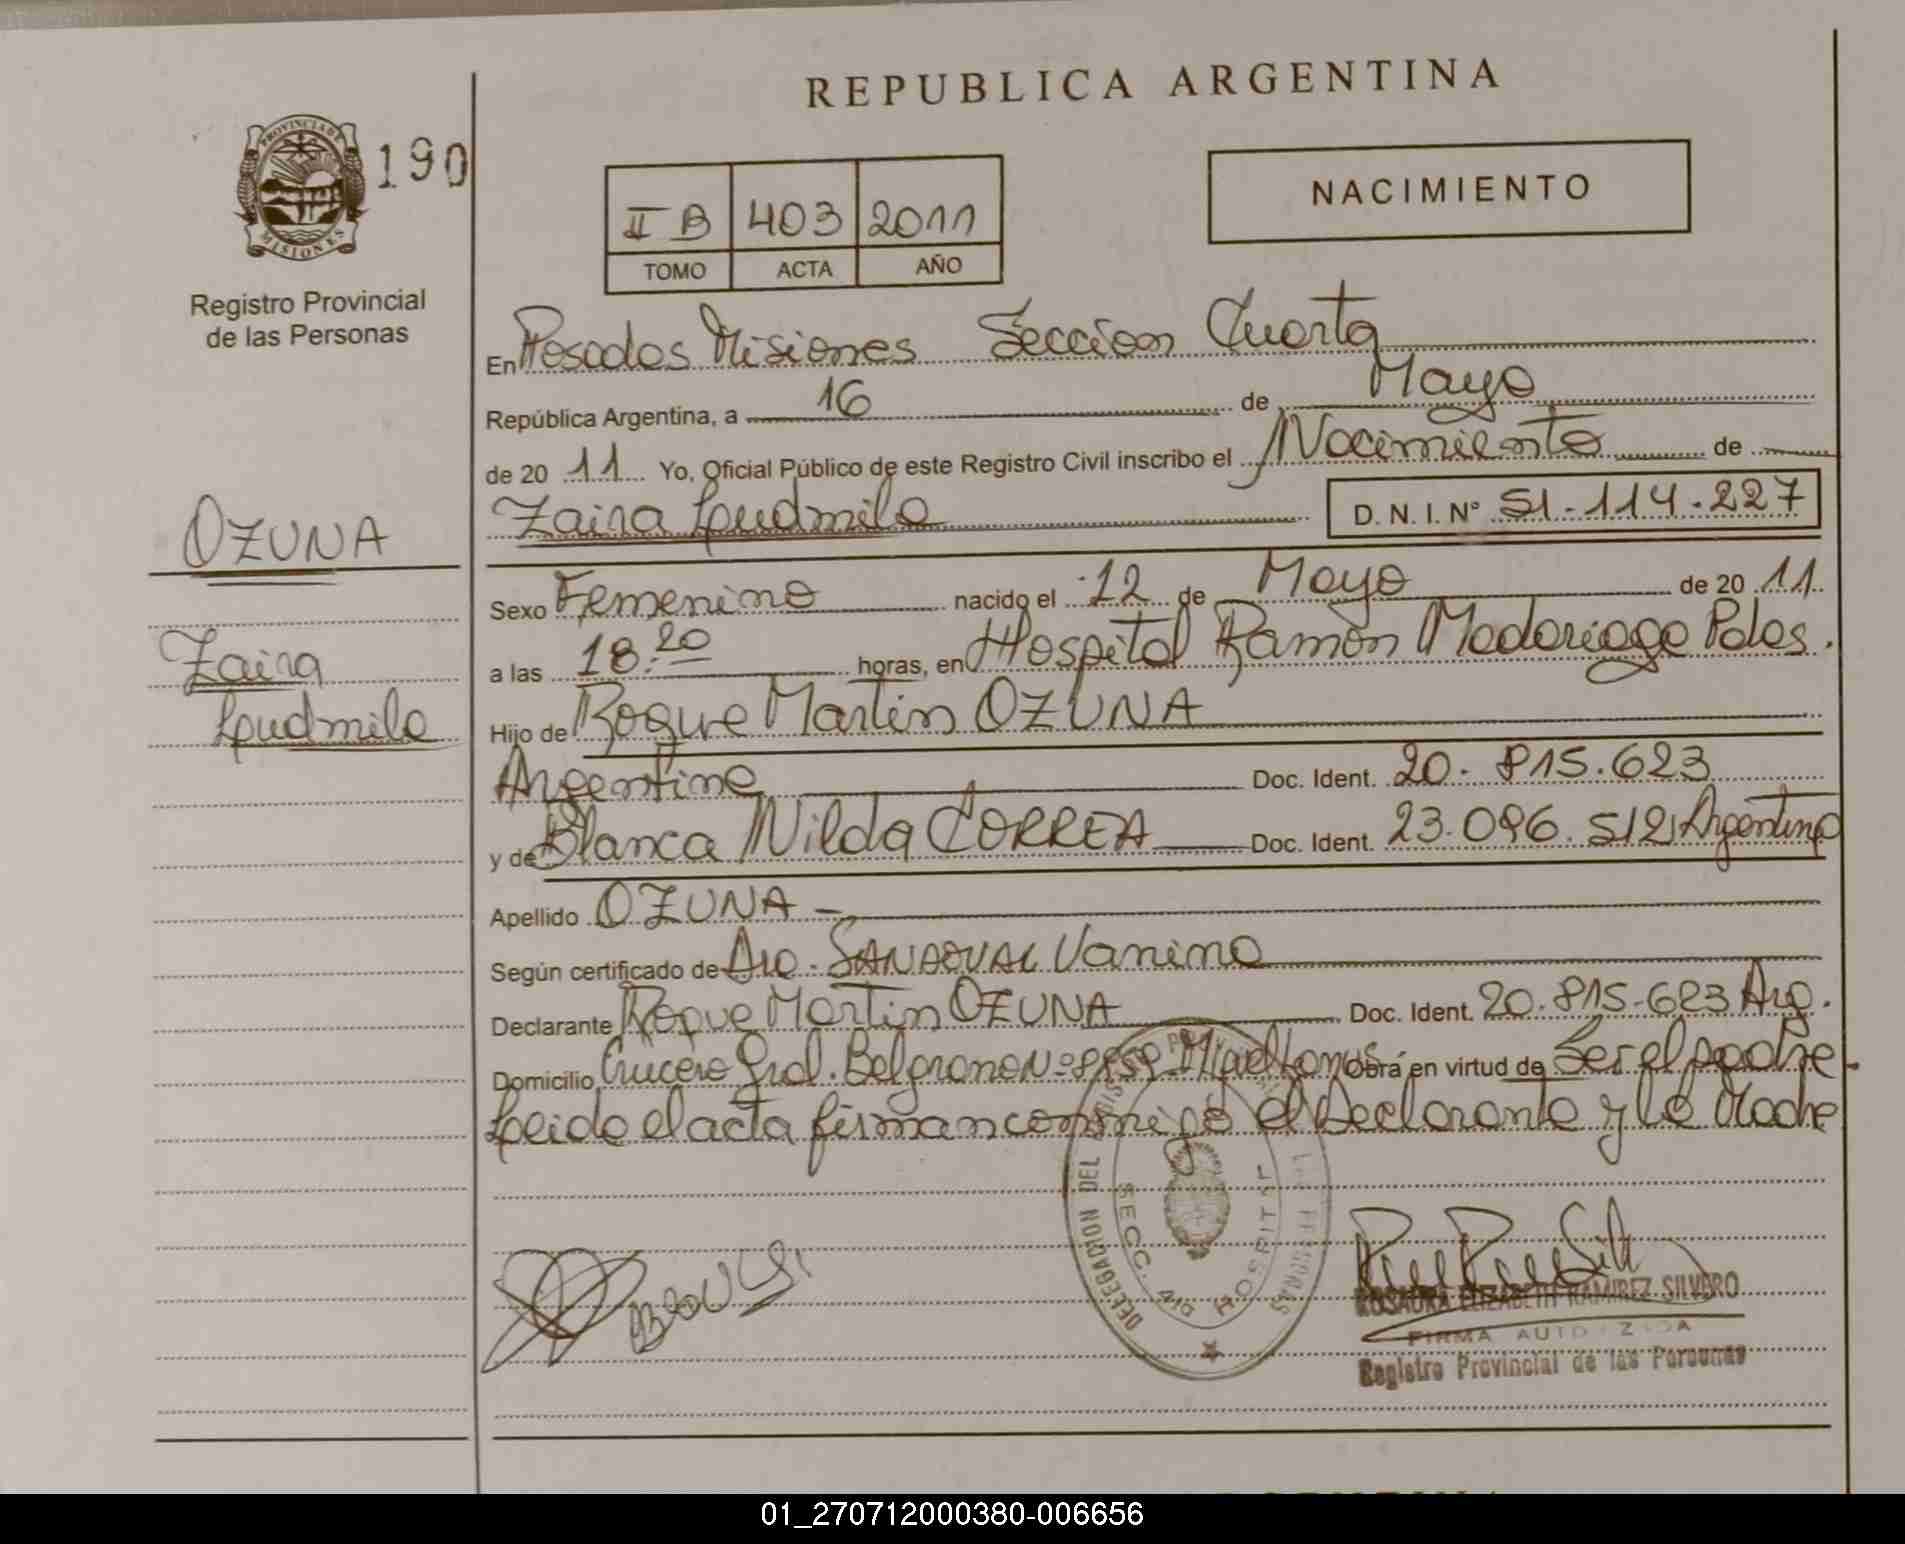 REPUBLICA ARGENTINA
PROVINCIA DE MISIONES
190
Registro Provincial
de las Personas
II B 403 2011
TOMO ACTA AÑO
NACIMIENTO
En Posadas Misiones Seccion Cuarta
República Argentina, a 16 de Mayo
de 20 11 Yo, Oficial Público de este Registro Civil inscribo el Nacimiento de
Zaira Ludmila D. N. I. Nº 51-114.227
OZUNA
Zaira
Ludmila
Sexo Femenino nacido el 12 de Mayo de 20 11
a las 18:20 horas, en Hospital Ramón Madariaga Pdas.
Hijo de Roque Martin OZUNA
Argentino Doc. Ident. 20.815.623
y de Blanca Nilda CORREA Doc. Ident. 23.096.512 Argentina
Apellido OZUNA
Según certificado de SANDOVAL Vanina
Declarante Roque Martin OZUNA Doc. Ident. 20.815.623 Arg.
Domicilio Crucero Gral. Belgrano Nº Obra en virtud de Ser el padre
Leida el acta firman conmigo el Declarante y la Madre
DELEGACION DEL
SECC. 4ta HOSPITAL
ROSAURA ELIZABETH RAMIREZ SILVERO
FIRMA AUTORIZADA
Registro Provincial de las Personas
01_270712000380-006656